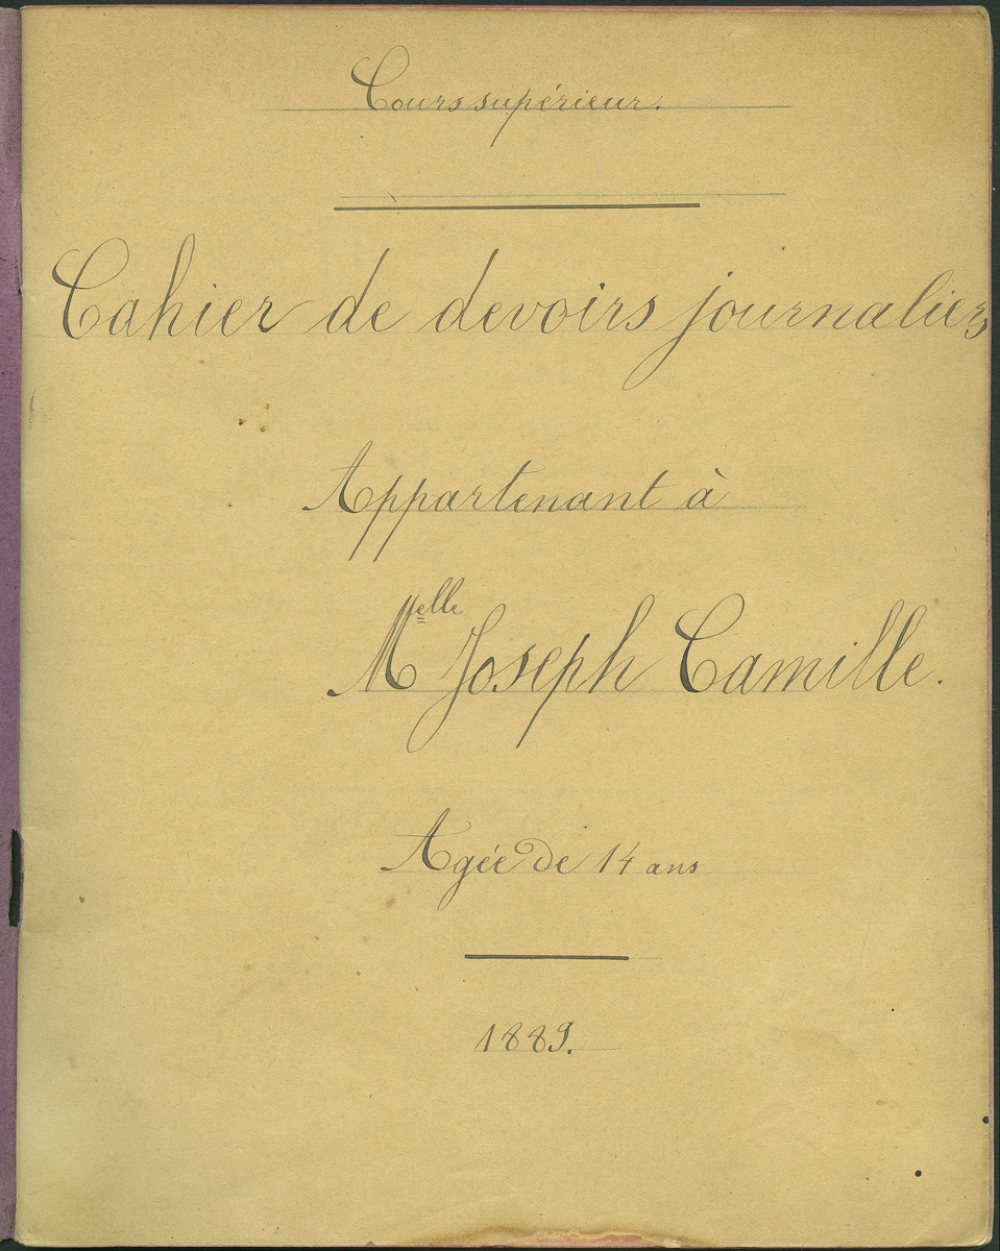 Cours supérieur.
Cahier de devoirs journaliers
Appartenant à
Melle Joseph Camille.
Agée de 14 ans
1889.